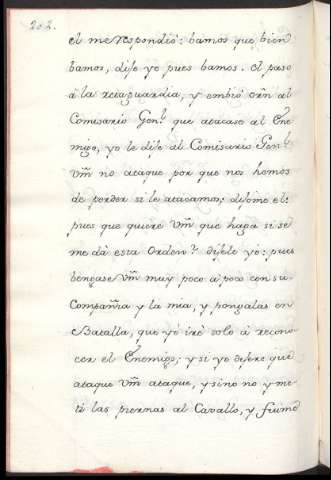 202.
el me respondió: bamos que bien
bamos, dije yo pues bamos. el paso
à la retaguardia, y embió orñ al
Comisario Genˡ. que atacase al Ene
migo, yo le dije al Comisario Genˡ.
Vm̃ no ataque por que nos hemos
de perder si le atacamos; dijome el:
pues que quiere Vm̃ que haga si se
me dà esta Orden? dijele yo: pues
bengase Vm̃ muy poco à poco con su
Compañia y la mia, y pongalas en
Batalla, que yo iré solo à recono
cer el Enemigo; y si yo dijere que
ataque Vm̃ ataque, y sino no y me
ti las piernas al Cavallo, y fuime